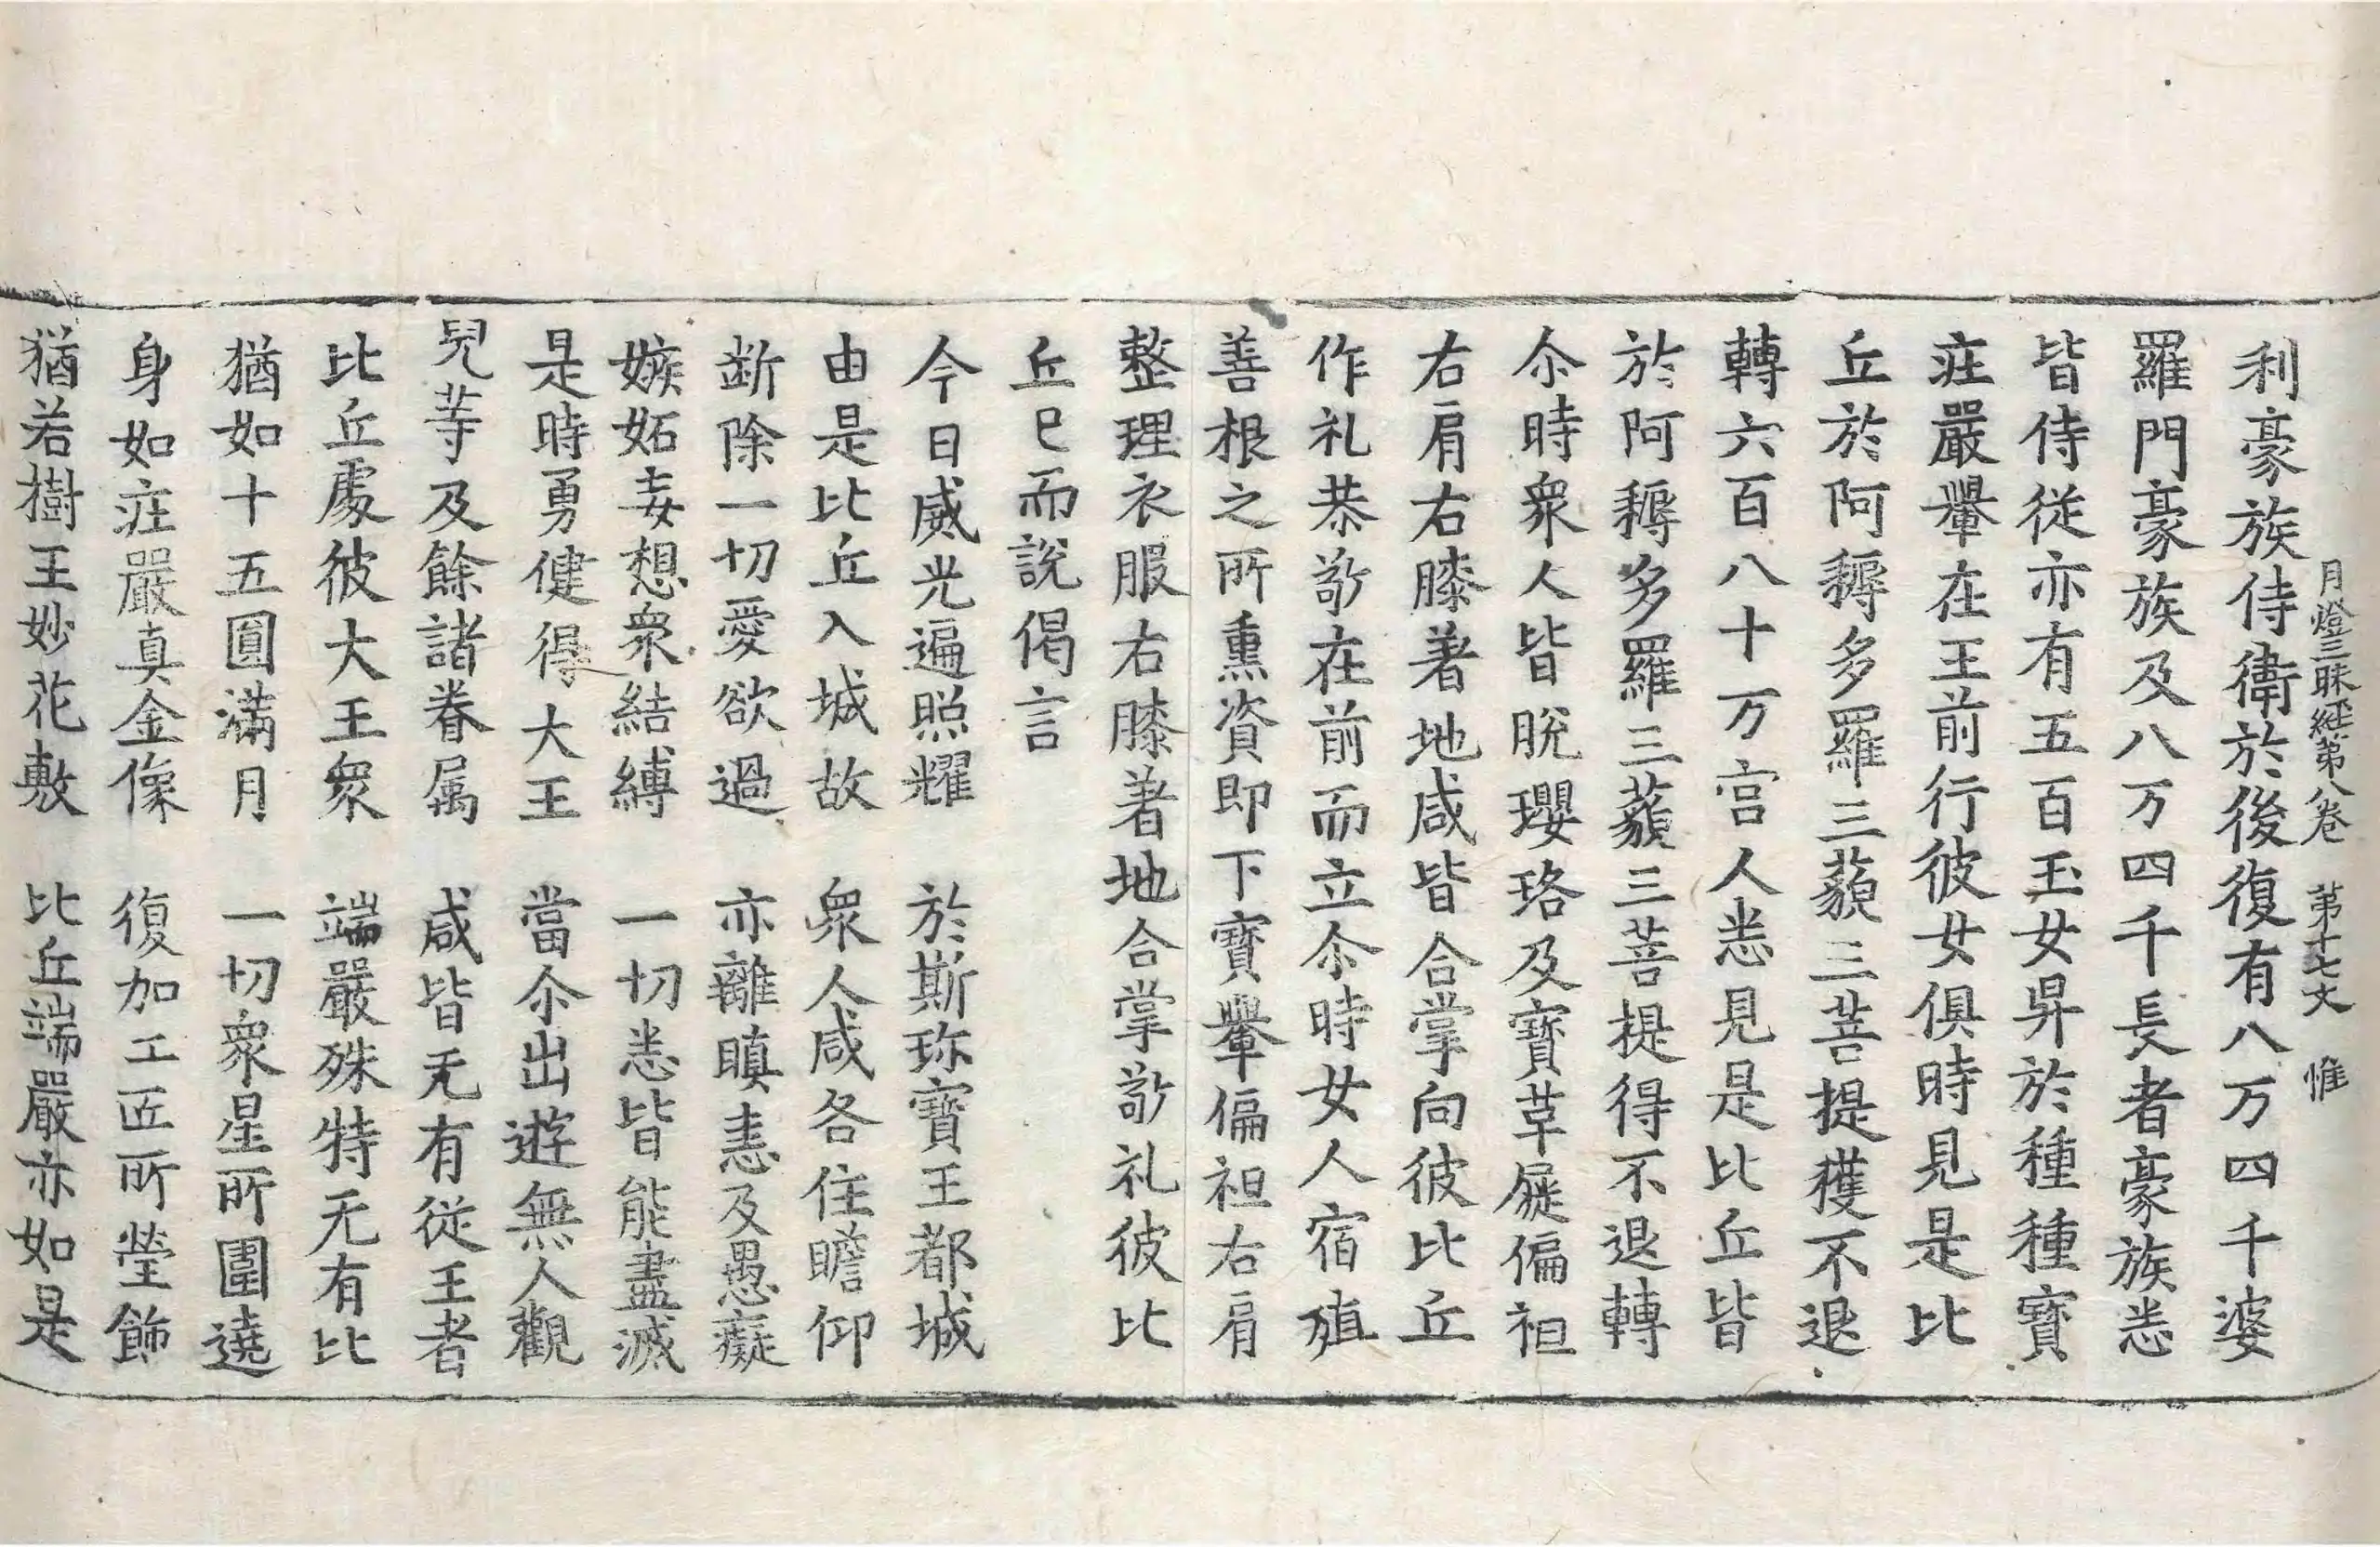 月燈三昧經第八卷　第十七丈　惟
利豪族侍衛於後復有八万四千婆
羅門豪族及八万四千長者豪族悉
皆侍從亦有五百玉女昇於種種寶
莊嚴轝在王前行彼女俱時見是比
丘於阿耨多羅三藐三菩提獲不退
轉六百八十万宮人悉見是比丘皆
於阿耨多羅三藐三菩提得不退轉
尒時衆人皆脫瓔珞及寶草屣偏袒
右肩右膝著地咸皆合掌向彼比丘
作礼恭敬在前而立尒時女人宿殖
善根之所熏資即下寶轝偏袒右肩
整理衣服右膝著地合掌敬礼彼比
丘已而說偈言
今日威光遍照耀　於斯珎寶王都城
由是比丘入城故　衆人咸各住瞻仰
断除一切愛欲過　亦離瞋恚及愚癡
嫉妬妄想衆結縛　一切悉皆能盡滅
是時勇健得大王　當尒出遊無人觀
兒等及餘諸眷属　咸皆无有從王者
比丘處彼大王衆　端嚴殊特无有比
猶如十五圓滿月　一切衆星所圍遶
身如莊嚴真金像　復加工匠所瑩飾
猶若樹王妙花敷　比丘端嚴亦如是